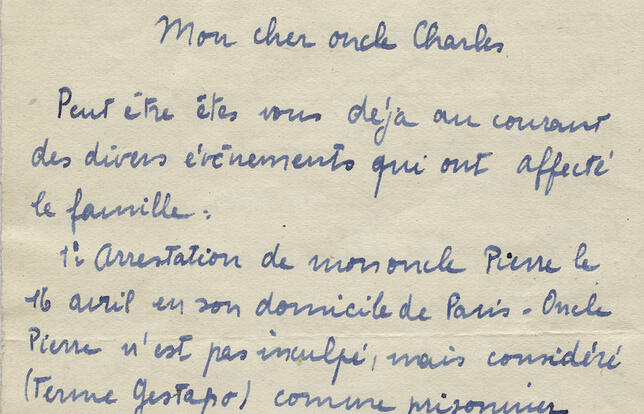 Mon cher oncle Charles
Peut être êtes vous déja au courant
des divers évènements qui ont affecté
le famille :
1° Arrestation de mon oncle Pierre le
16 avril en son domicile de Paris - Oncle
Pierre n'est pas inculpé, mais considéré
(Terme Gestapo) comme prisonnier